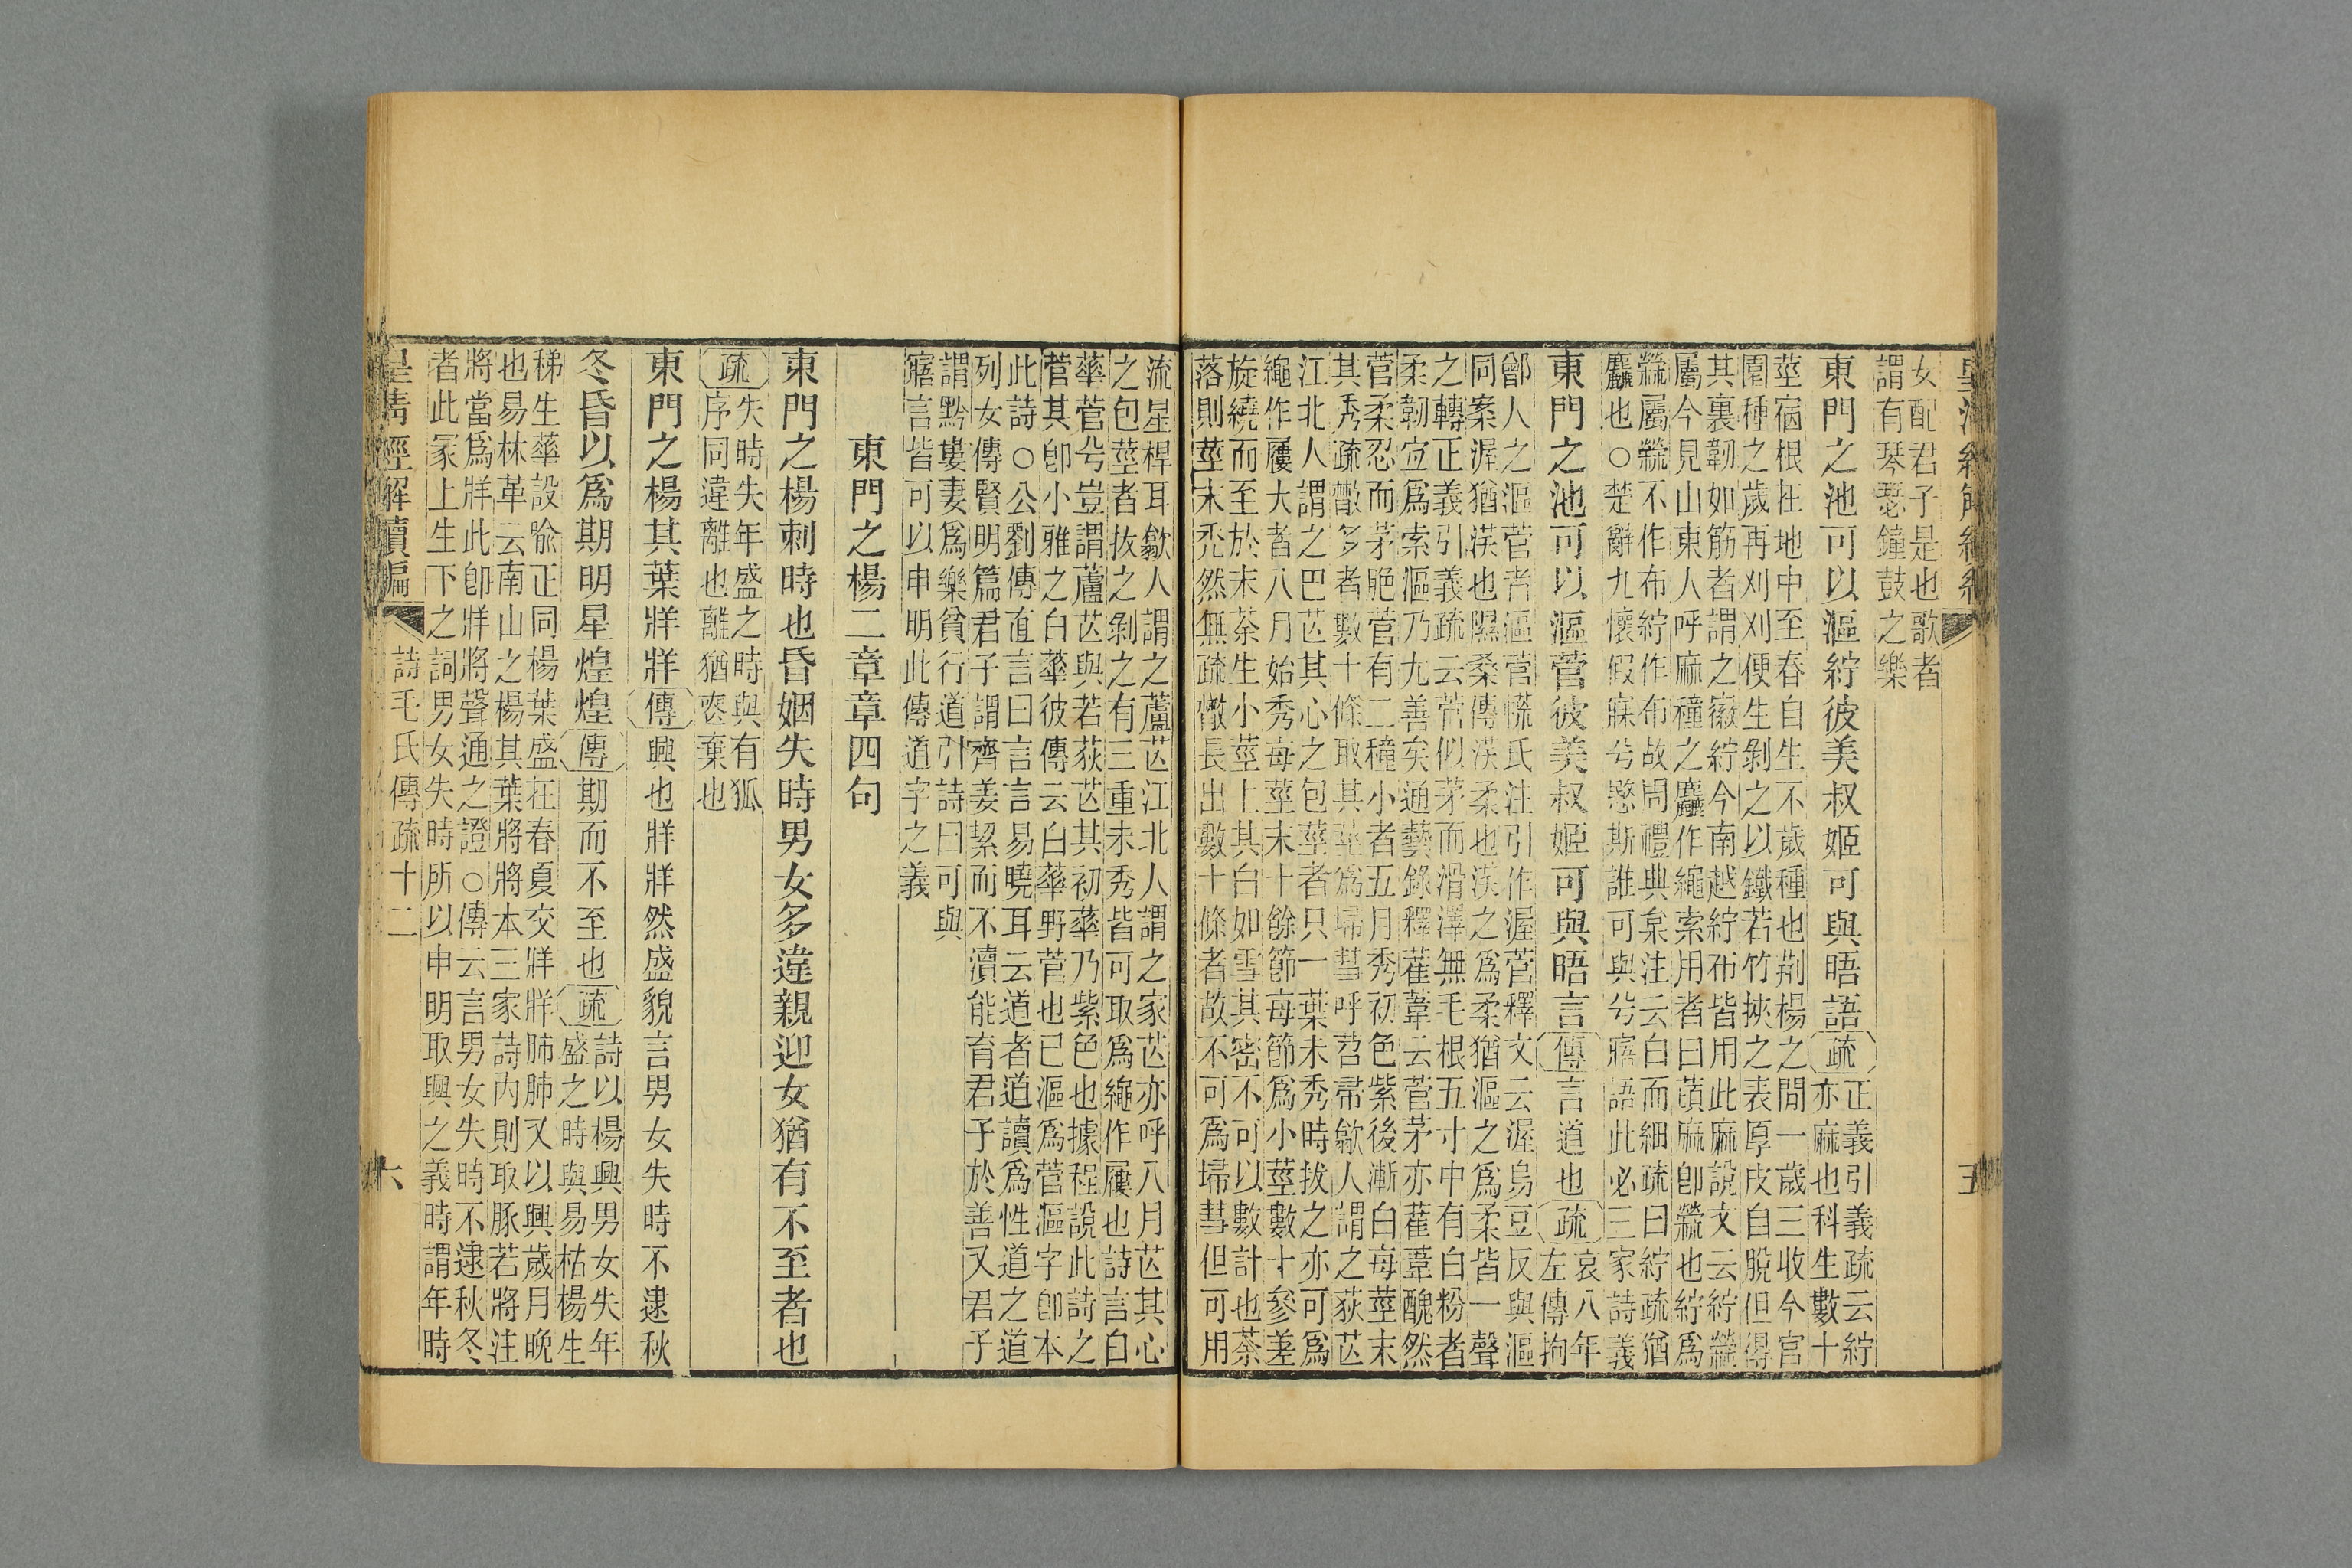 女配君子是也歌者
謂有琴瑟鐘鼓之樂
東門之池可以漚紵彼美叔姬可與晤語疏
正義引義疏云紵
亦麻也科生數十
莖宿根在地中至春自生不歲種也荆楊之間一歲三收今官
園種之歲再刈刈便生剝之以鐵若竹挾之表厚皮自脫但得
其裏韌如筋者謂之徽紵今南越紵布皆用此麻說文云紵䌌爲
屬今見山東人呼麻穜之麤作繩索用者曰䔛麻卽䌌也紵爲
䌌屬䌌不作布紵作布故周禮典枲注云白而細疏曰紵疏猶
麤也○楚辭九懷假寐兮愍斯誰可與兮寤語此必三家詩義
東門之池可以漚菅彼美叔姬可與晤言傳言道也疏
哀八年
左傳拘
鄫人之漚菅者漚菅㡛氏注引作渥菅釋文云渥烏豆反與漚
同案渥猶渜也隰桑傳渜柔也渜之爲柔猶漚之爲柔皆一聲
之轉正義引義疏云菅似茅而滑澤無毛根五寸中有白粉者
柔韌宜爲索漚乃尤善矣通藝錄釋雚葦云菅茅亦雚葦醜然
菅柔忍而茅脃菅有二穜小者五月秀初色紫後漸白每莖末
其秀疏散多者數十條取其莖爲埽彗呼苕帚歙人謂之荻芀
江北人謂之巴芀其心之包莖者只一葉未秀時拔之亦可爲
繩作屨大者八月始秀每莖末十餘節每節爲小莖數十參差
旋繞而至於末荼生小莖上其白如雪其密不可以數計也荼
落則莖末禿然無疏散長出數十條者故不可爲埽彗但可用
流星桿耳歙人謂之蘆芀江北人謂之家芀亦呼八月芀其心
之包莖者拔之剝之有三重未秀皆可取爲繩作屨也詩言白
華菅兮豈謂蘆芀與若荻芀其初華乃紫色也據程說此詩之
菅其卽小雅之白華彼傳云白華野菅也已漚爲菅漚字卽本
此詩○公劉傳直言曰言言易曉耳云道者道讀爲性道之道
列女傳賢明篇君子謂齊姜絜而不瀆能育君子於善又君子
謂黔婁妻爲樂貧行道引詩曰可與
寤言皆可以申明此傳道字之義
東門之楊二章章四句
東門之楊刺時也昏姻失時男女多違親迎女猶有不至者也
疏
失時失年盛之時與有狐
序同違離也離猶喪棄也
東門之楊其葉牂牂傳興也牂牂然盛貌言男女失時不逮秋
冬昏以爲期明星煌煌傳期而不至也疏
詩以楊興男女失年
盛之時與易枯楊生
稊生華設喻正同楊葉盛在春夏交牂牂肺肺又以興歲月晚
也易林革云南山之楊其葉將將本三家詩內則取豚若將注
將當爲牂此卽牂將聲通之證○傳云言男女失時不逮秋冬
者此冡上生下之詞男女失時所以申明取興之義時謂年時
皇清經解續編
詩毛氏傳疏十二
六